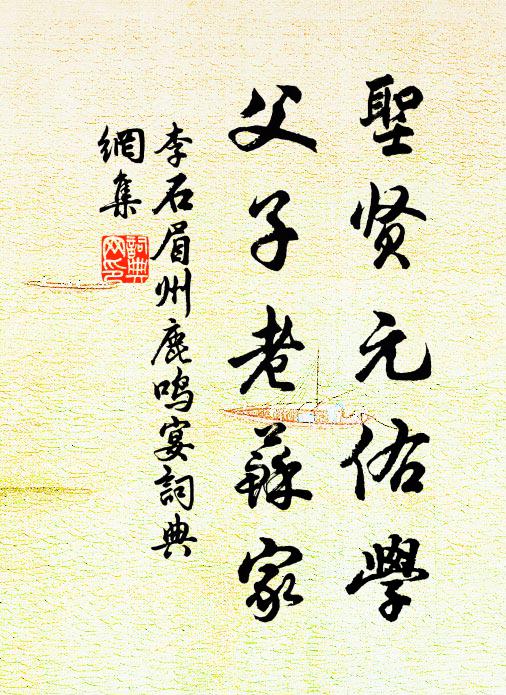 聖贤元佑學
父子老蘇家
李石眉州鹿鸣宴詞典
網集
詞典
网印